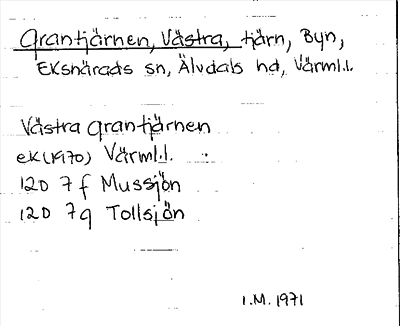 Grantjärnen, Västra, tjärn, Byn,
Ekshärads sn, Älvdals hd, Värml.l.
Västra Grantjärnen
eK (1970) Värml.l.
12D 7f Mussjön
12D 7g Tollsjön
I.M. 1971